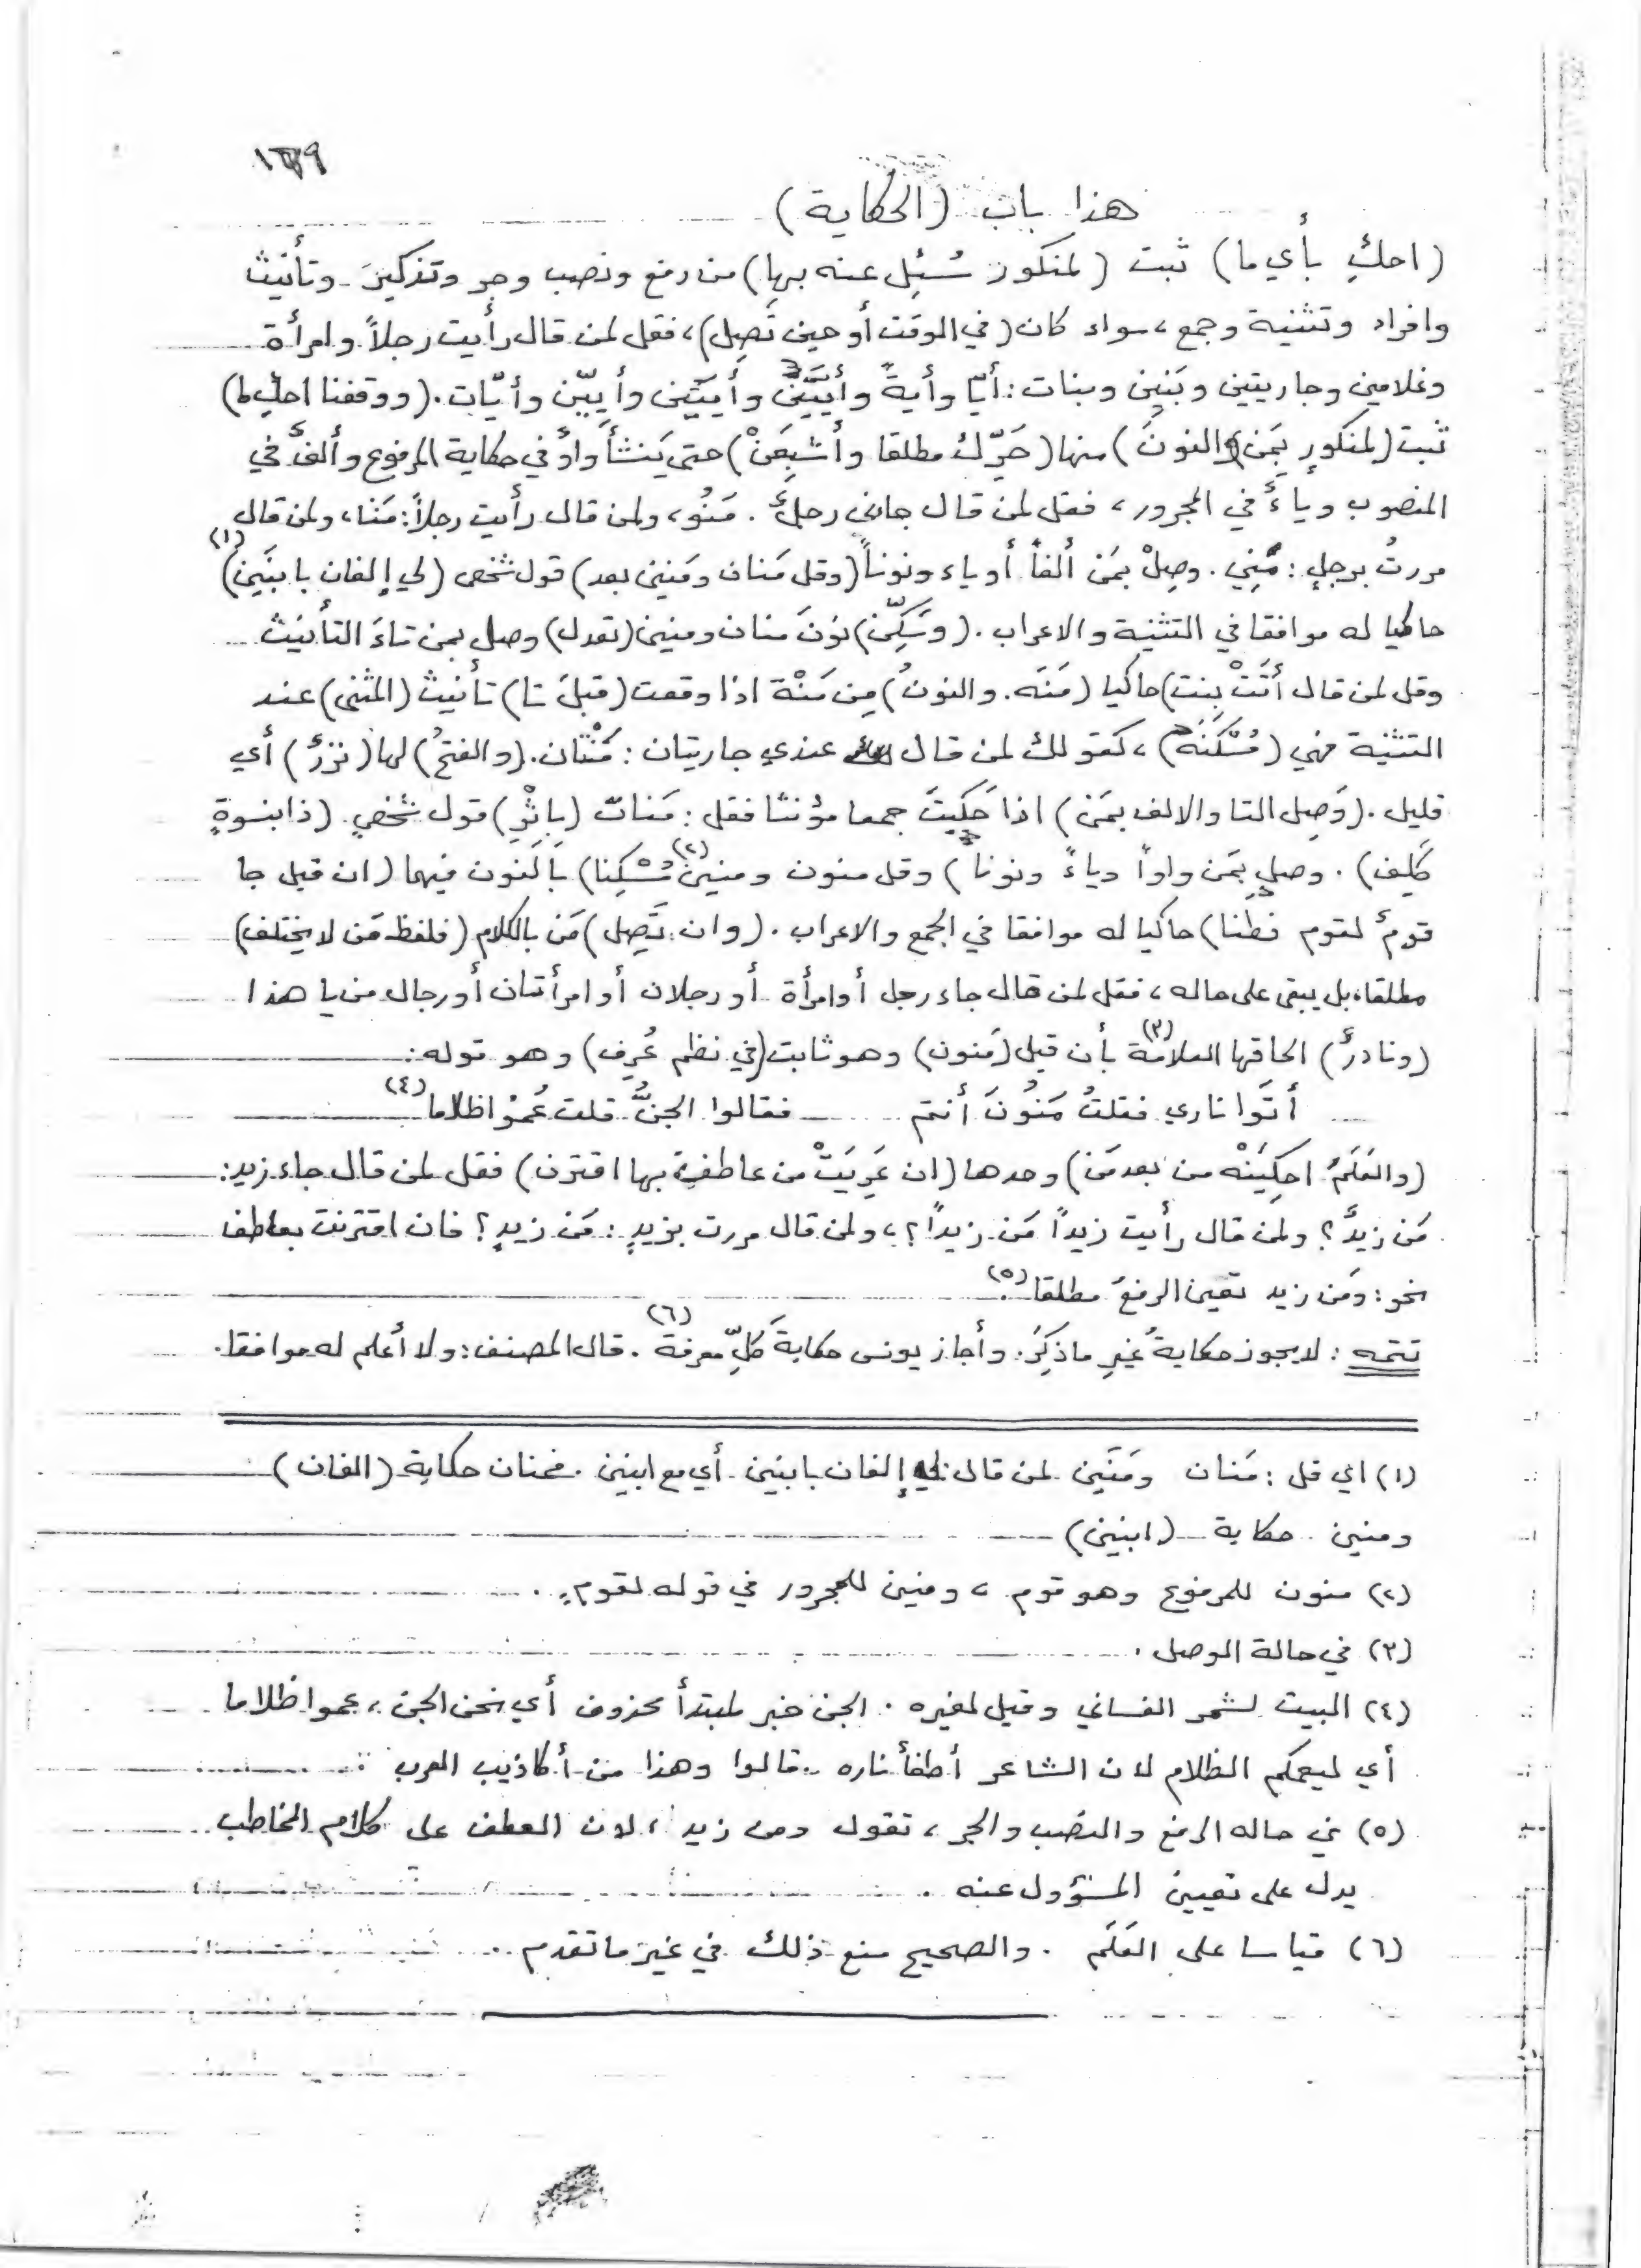 هذا باب (الحكاية)
(احكِ بأي ما) ثبت (لمنكور سُئِل عنه بها) من رفع ونصب وجر وتذكير وتأنيث
وافراد وتثنية وجمع، سواء كان (في الوقت أو حين تَصِل)، فقل لمن قال رأيت رجلاً وامرأة
وغلامين وجاريتين وبَنِين وبنات: أيّا وأيةً وأيَّيْن وأيتَين وأيِّين وأيّات. (ووقفنا احكِ ما)
ثبت (لمنكورٍ بمَن والنونَ) منها (حَرِّك مطلقا وأشبِعَنْ) حتى يَنشأ واوٌ في حكاية المرفوع وألفٌ في
المنصوب وياءٌ في المجرور، فقل لمن قال جاءنى رجلٌ. مَنُو، ولمن قال رأيت رجلاً: مَنا، ولمن قال
مررتُ برجلٍ: مَنِي. وصِلْ بمَن ألفاً أو ياء ونوناً (وقل مَنان ومَنين بعد) قول شخص (لي إلفان بابنَين) (١)
حاكيا له موافقا في التثنية والاعراب. (وسَكِّن) نونَ منان ومنين (تعدل) وصل بمن تاءَ التأنيث
وقل لمن قال أتَتْ بنت) حاكيا (مَنَه. والنونُ) مِن مَنْة اذا وقعت (قبلَ تا) تأنيث (المثنى) عند
التثنية فهي (مُسْكَنَة)، كقولك لمن قال عندي جاريتان: مَنْتان. (والفتحُ) لها (نزرٌ) أي
قليل. (وَصِل التا والالف بمَن) اذا حَكيتَ جمعا مؤنثا فقل: مَنات (بإثْرِ) قول شخصٍ (ذا بنسوةٍ
كَلِف). وصلِ بمَن واواً وياءً ونوناً) وقل منون ومنينَ (٢) مُسْكِنا) بالنون فيهما (ان قيل جا
قومٌ لقوم فطنا) حاكيا له موافقا في الجمع والاعراب. (وان تَصِل) مَن بالكلام (فلفظ مَن لا يختلف)
مطلقا، بل يبقى على حاله، فقل لمن قال جاء رجل أو امرأة أو رجلان أو امرأتان أو رجال من يا هذا
(ونادرٌ) الحاقها العلامة (٣) بأن قيل (مَنون) وهو ثابت (في نظم عُرِف) وهو قوله:
أتَوا ناري فقلتُ مَنُونَ أنتم فقالوا الجنُّ قلت عُموْا ظلاما (٤)
(والعَلَمَ احكِيَنْه من بعد مَن) وحدها (ان عَرِيَتْ من عاطفٍ بها اقترن) فقل لمن قال جاء زيد:
مَن زيدٌ؟ ولمن قال رأيت زيداً مَن زيداً؟، ولمن قال مررت بزيدٍ: مَن زيدٍ؟ فان اقترنت بعاطف
نحو: ومَن زيد تعين الرفعُ مطلقا (٥).
تتمه: لا يجوز حكايةُ غيرِ ما ذُكِر. وأجاز يونس حكايةَ كلِّ معرفة (٦). قال المصنف: ولا أعلم له موافقا.
(١) اي قل: مَنان ومَنَين لمن قال لي إلفان بابنين أي مع ابنين. فمنان حكاية (الفان)
ومنين حكاية (ابنين)
(٢) منون للمرفوع وهو قوم، ومنين للمجرور في قوله لقومٍ.
(٣) في حالة الوصل.
(٤) البيت لشمر الغساني وقيل لغيره. الجن خبر لمبتدأ محذوف أي نحن الجن، عموا ظلاما
أي ليعمكم الظلام لان الشاعر أطفأ ناره. قالوا وهذا من أكاذيب العرب
(٥) في حاله الرفع والنصب والجر، تقول ومن زيد، لان العطف على كلام المخاطب
يدل على تعيين المسؤول عنه.
(٦) قياسا على العَلَم. والصحيح منع ذلك في غير ما تقدم.